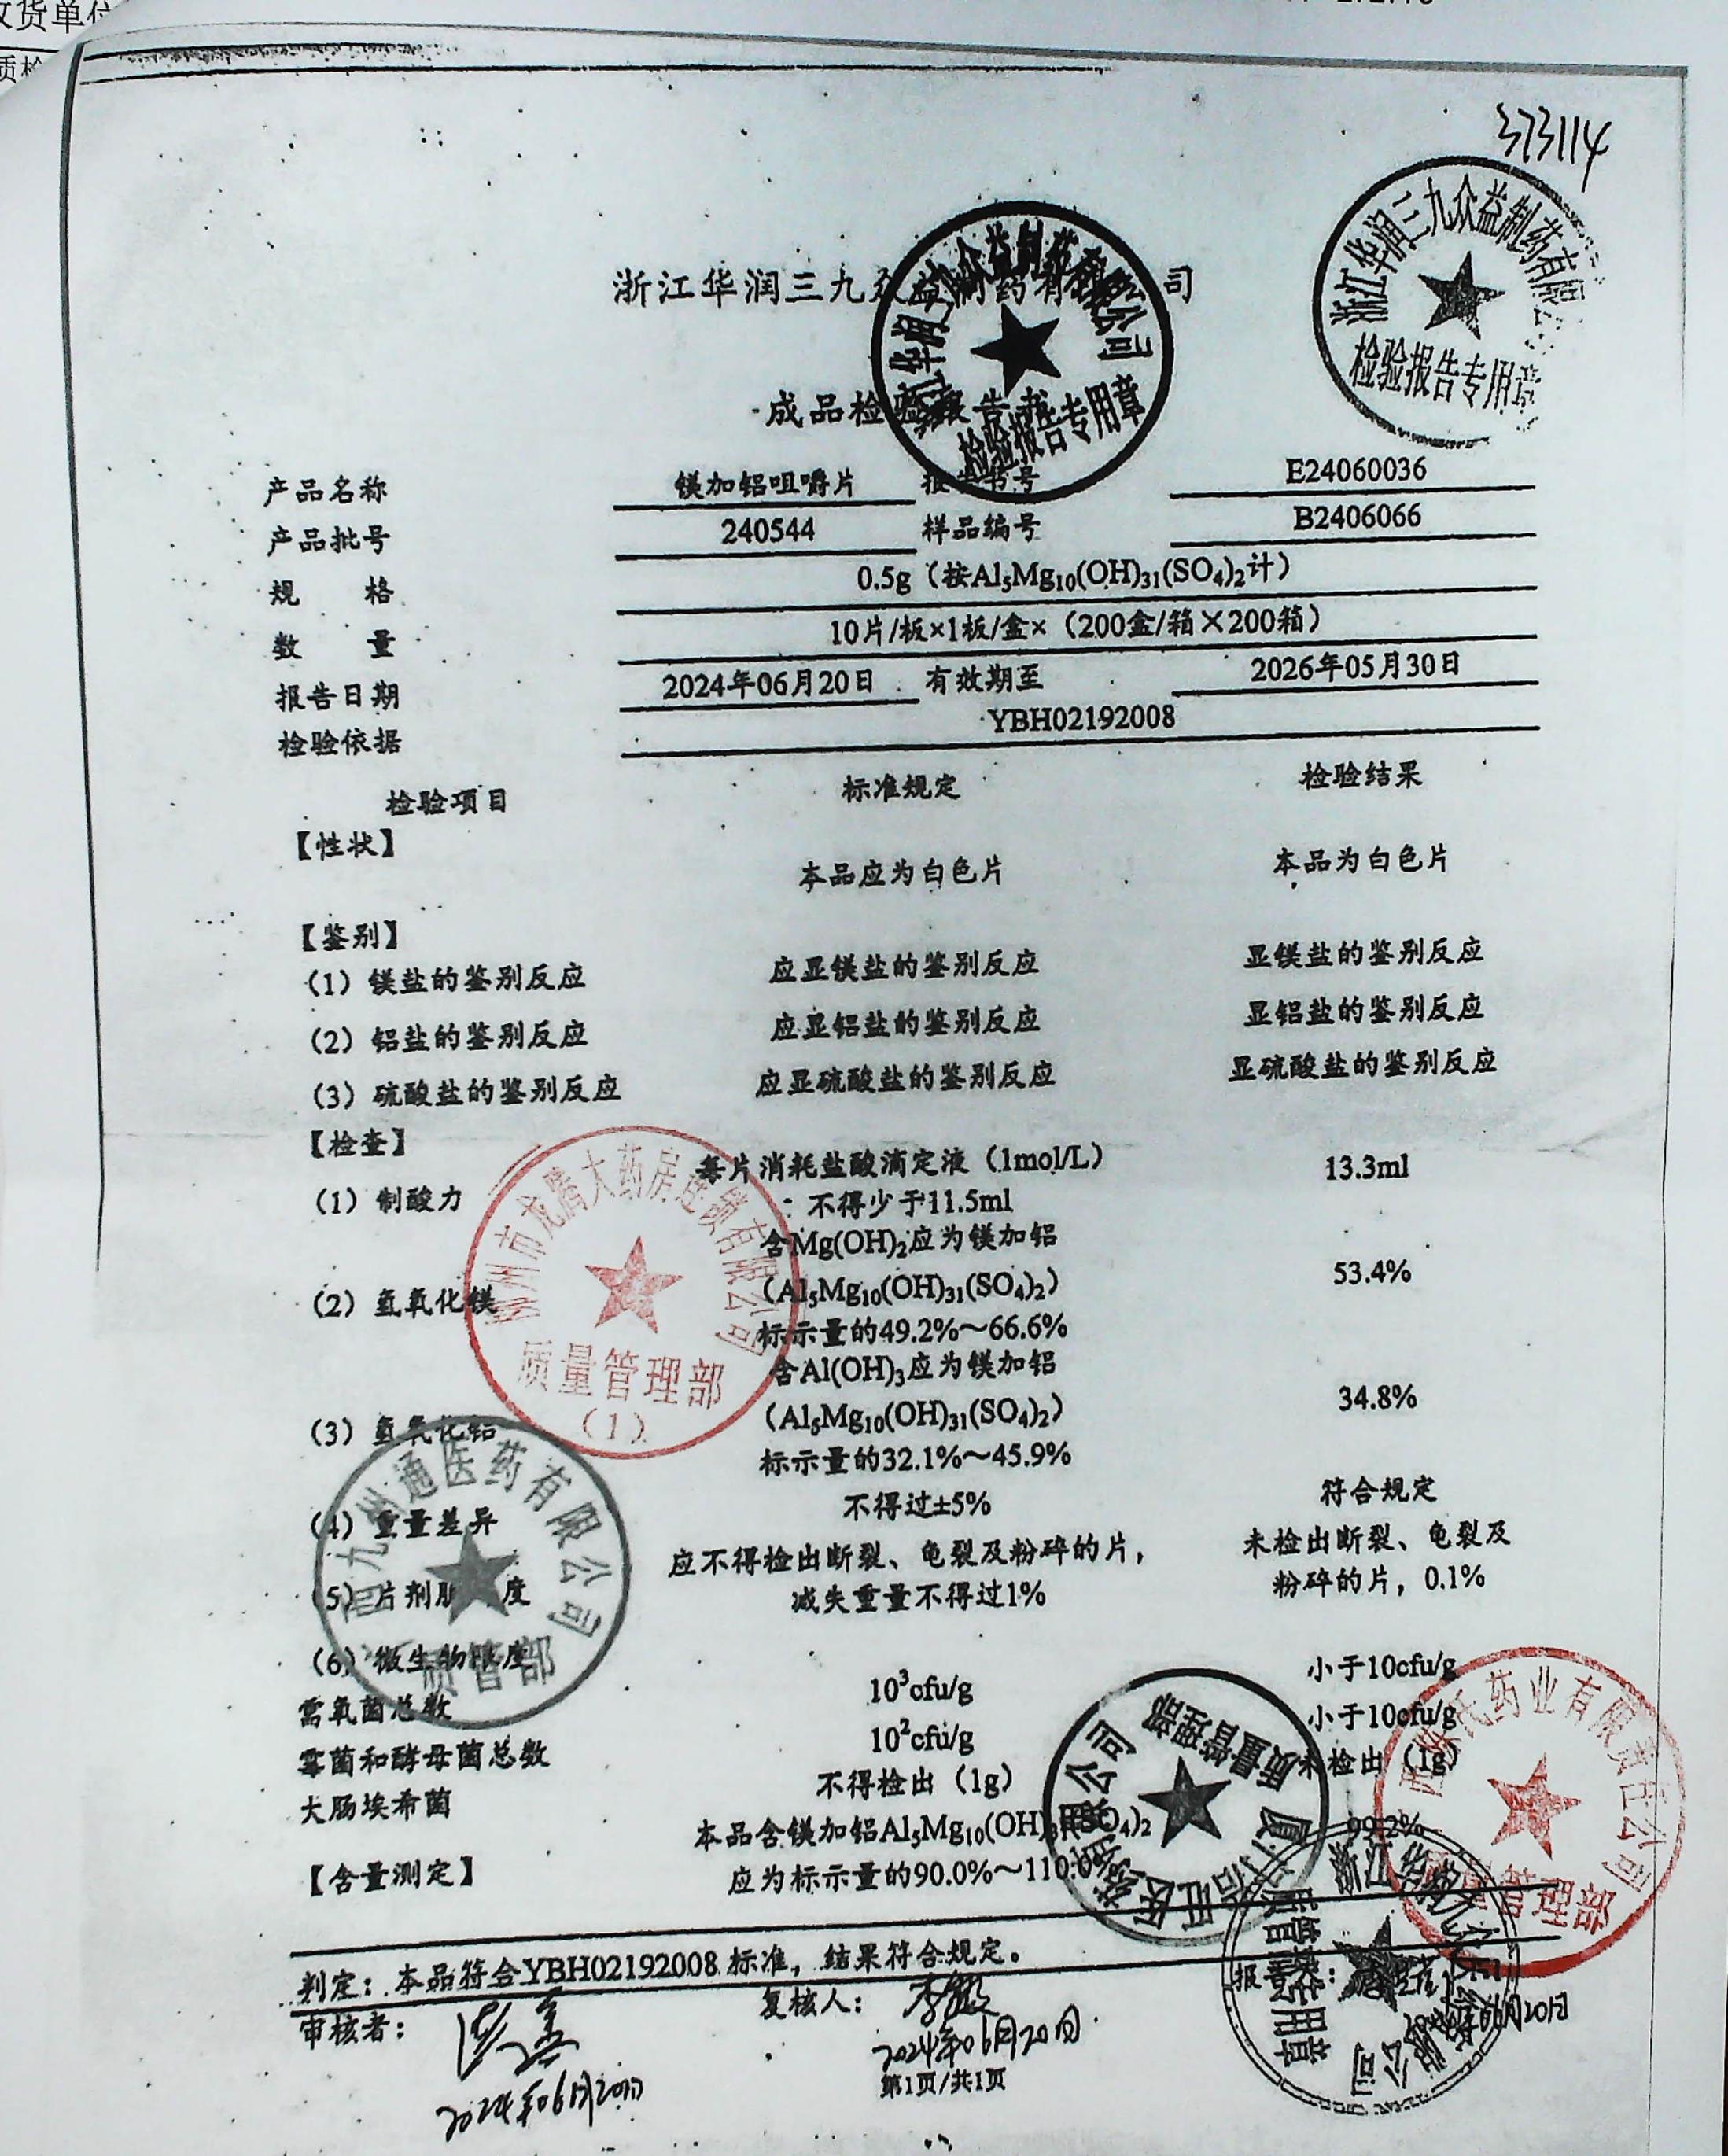 收货单位
质检
373114
浙江华润三九众益制药有限公司
检验报告专用章
浙江华润三九众益制药有限公司
检验报告专用章
成品检验报告书
产品名称 镁加铝咀嚼片 报告书号 E24060036
产品批号 240544 样品编号 B2406066
规 格 0.5g（按Al₅Mg₁₀(OH)₃₁(SO₄)₂计）
数 量 10片/板×1板/盒×（200盒/箱×200箱）
报告日期 2024年06月20日 有效期至 2026年05月30日
检验依据 YBH02192008
检验项目 标准规定 检验结果
【性状】
本品应为白色片 本品为白色片
【鉴别】
（1）镁盐的鉴别反应 应显镁盐的鉴别反应 显镁盐的鉴别反应
（2）铝盐的鉴别反应 应显铝盐的鉴别反应 显铝盐的鉴别反应
（3）硫酸盐的鉴别反应 应显硫酸盐的鉴别反应 显硫酸盐的鉴别反应
【检查】
（1）制酸力 每片消耗盐酸滴定液（1mol/L） 13.3ml
不得少于11.5ml
含Mg(OH)₂应为镁加铝
（2）氢氧化镁 （Al₅Mg₁₀(OH)₃₁(SO₄)₂） 53.4%
标示量的49.2%～66.6%
含Al(OH)₃应为镁加铝
（3）氢氧化铝 （Al₅Mg₁₀(OH)₃₁(SO₄)₂） 34.8%
标示量的32.1%～45.9%
（4）重量差异 不得过±5% 符合规定
（5）片剂脆碎度 应不得检出断裂、龟裂及粉碎的片， 未检出断裂、龟裂及
减失重量不得过1% 粉碎的片，0.1%
（6）微生物限度
需氧菌总数 10³cfu/g 小于10cfu/g
霉菌和酵母菌总数 10²cfu/g 小于10cfu/g
大肠埃希菌 不得检出（1g） 未检出（1g）
【含量测定】 本品含镁加铝Al₅Mg₁₀(OH)₃₁(SO₄)₂ 99.2%
应为标示量的90.0%～110.0%
市龙腾大药房连锁有限公司
质量管理部
（1）
九州通医药有限公司
质管部
质量管理部
药业有限责任公司
管理部
质管部
专用章
判定：本品符合YBH02192008标准，结果符合规定。
审核者： 复核人： 报告人：
2024年06月20日 2024年06月20日 06月20日
第1页/共1页